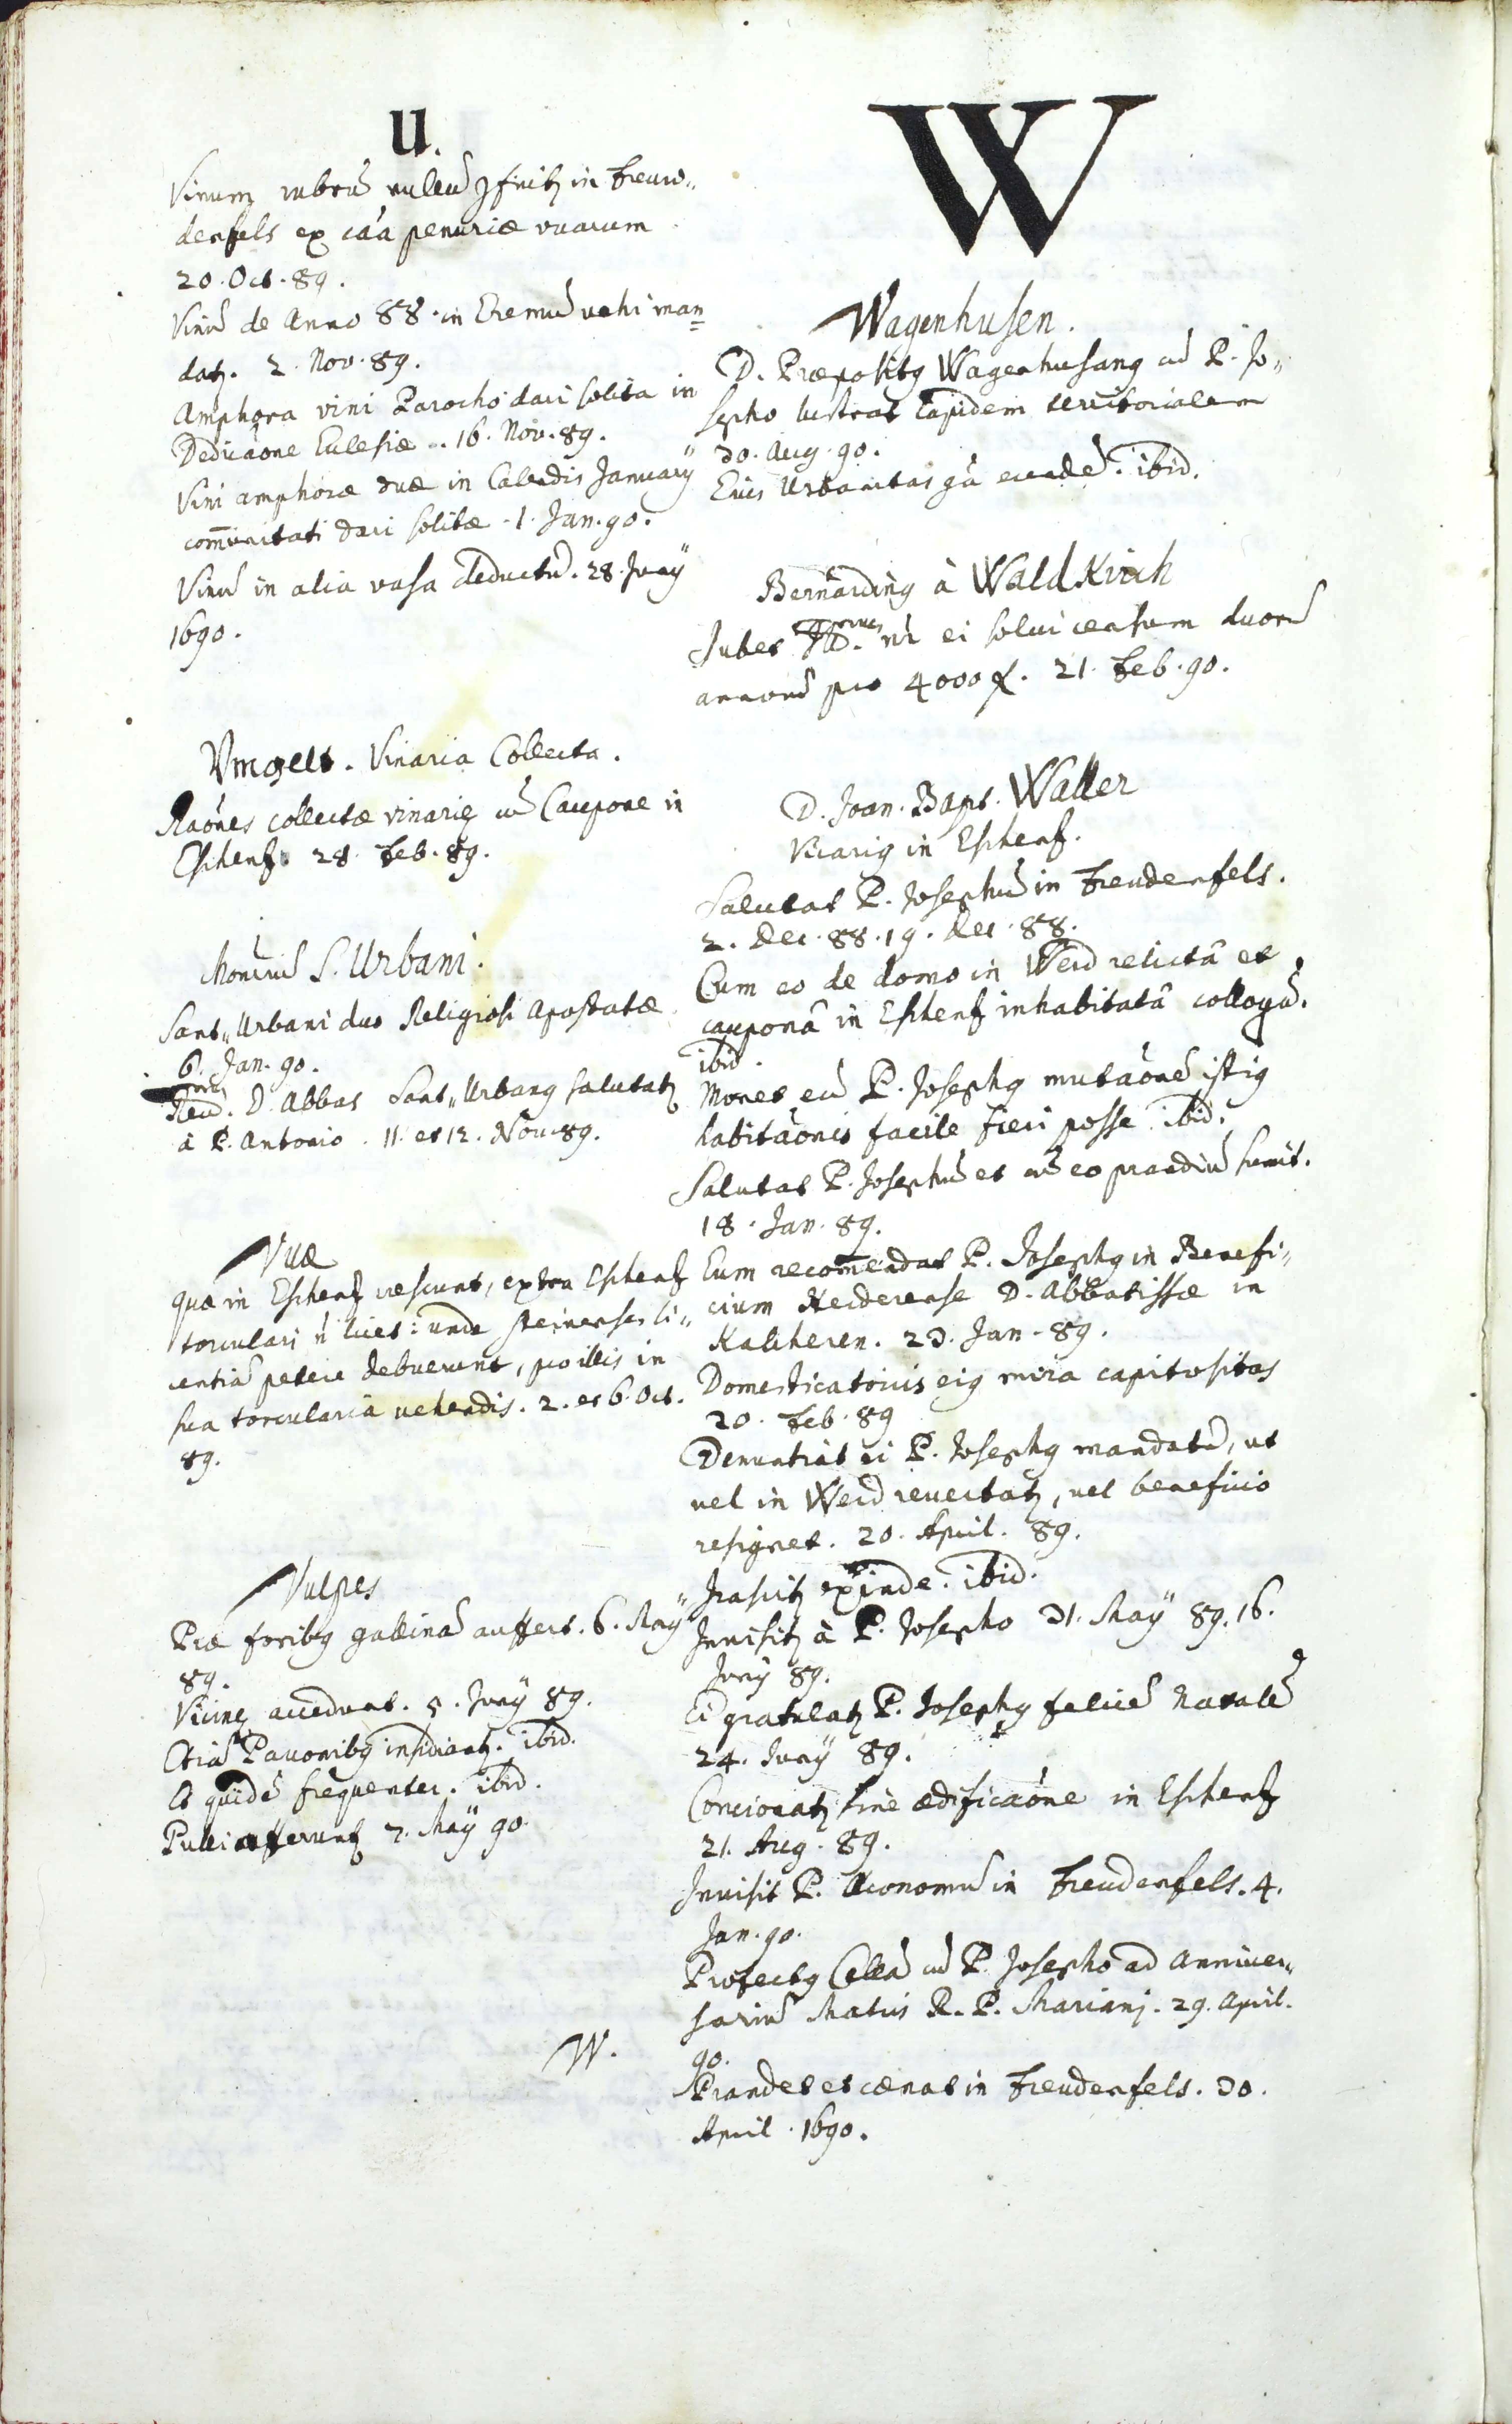 U.
Vinum rubrũ nullũ ꝯficitꝫ in Freuw„
denfels ex cãa penuriæ vuarum
20. Oct. 89.
Vinũ de Anno 88. in Eremũ vehi man=
datꝫ. 2. Nov. 89.
Amphora vini Parocho dari solita in
Dedicãone Ecclesiæ. 16. Nov. 89.
Vini amphoræ duæ in Calendis Januarÿ
com̃unitati dari solitæ. 1. Jan. 90.
Vinũ in alia vasa deductũ. 28. Junÿ
1690.
Vmgelt. Vinaria Collecta.
Raõnes collectæ vinarię cũ Caupone in
Eschenꝫ 28. Feb. 89.
Monriũ S. Urbani.
Sant„Urbani duo Religiosi Apostatæ
6. Jan. 90.
Rev.mus D. Abbas Sant„Urbanꝰ salutatꝫ
à P. Antonio. 11. et 12. Nov. 89.
Vuæ
quæ in Eschenꝫ crescunt, extra Eschenꝫ
torculari ñ licet: unde steinenses li„
centiã petere debuerunt, pro illis in
sua torcularia vehendis. 2. et 6. Oct.
89.
Vulpes
Præ foribꝰ gallinã auffert. 6. Maÿ
89.
Vicinę accedunt. 5. Junÿ 89.
Etiã Pavonibꝰ insidiantꝫ. ibid.
Et quidẽ frequenter. ibid.
Pulli afferuntꝫ 7. Maÿ 90.
W.
W
Wagenhusen.
D. Præpositꝰ Wagenhusanꝰ cũ P. Jo„
sepho lustrat lapidem territorialem
30. Aug. 90.
Eius Urbanitas gã eundẽ. ibid.
Bernardinꝰ à WaldKirch
Jubet Rmus D. nr ei solui censum duorũ
annorũ pro 4000 f. 21. Feb. 90.
D. Joan. Bapt. Waller
Vicariꝰ in Eschenꝫ.
Salutat P. Josephũ in Freudenfels.
2. Dec. 88. 19. Dec. 88.
Cum eo de domo in Werd relictâ et
cauponâ in Eschenꝫ inhabitatâ colloquũ.
ibid.
Monet eũ P. Josephꝰ mutãonẽ istiꝰ
habitãonis facile fieri posse. ibid.
Salutat P. Josephũ et cũ eo prandiũ sumit.
18. Jan. 89.
Eum recom̃endat P. Josephꝰ in Benefi„
cium Herderense D. Abbatissæ in
Kalcheren. 23. Jan. 89.
Domesticatoris eiꝰ mira capitositas
20. Feb. 89
Denuntiat ei P. Josephꝰ mandatũ, ut
vel in Werd revertatꝫ, vel beneficio
resignet. 20. April. 89.
Irascitꝫ exinde. ibid.
Invisitꝫ à P. Josepho 31. Maÿ 89. 16.
Junÿ 89.
Ei gratulatꝫ P. Josephꝰ felicẽ Natalẽ
24. Junÿ 89.
Concionatꝫ sine ædificãone in Eschenꝫ
21. Aug. 89.
Invisit P. Œconomũ in Freudenfels. 4.
Jan. 90.
Profectꝰ Cellã cũ P. Josepho ad Anniver„
sariũ Matris R. P. Mariani. 29. April.
90.
Prandet et cœnat in Freudenfels. 30.
April. 1690.